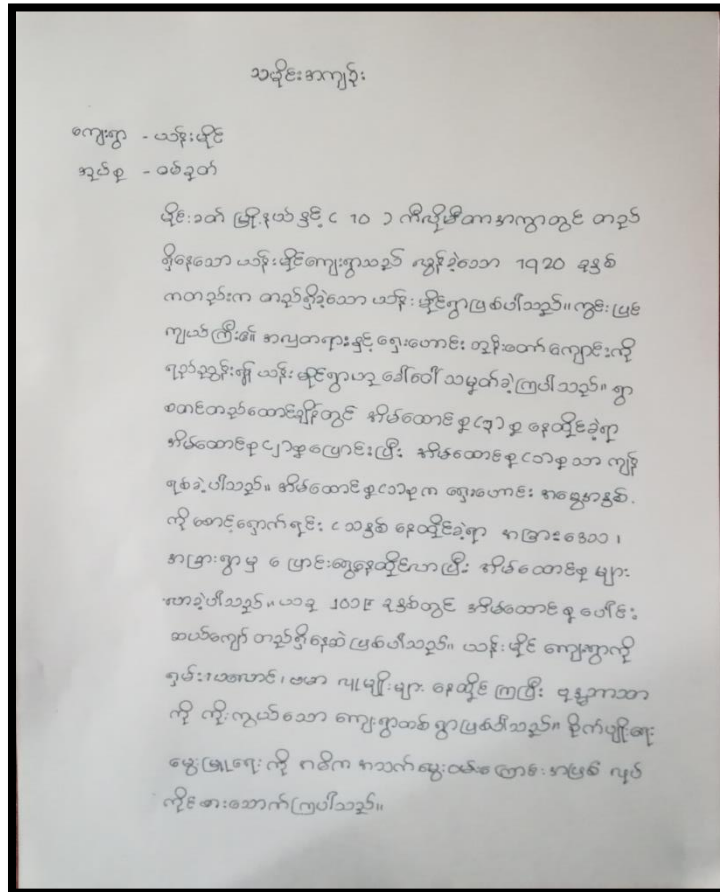 သမိုင်းအကျဉ်း
ကျေးရွာ - ယန်းမိုင်
အုပ်စု - ခမ်ခွတ်
မိုင်းခတ် မြို့နယ် နှင့် ( 10 ) ကီလိုမီတာ အကွာတွင် တည်
ရှိနေသော ယန်းမိုင်ကျေးရွာသည် လွန်ခဲ့သော 1920 ခုနှစ်
ကတည်းက တည်ရှိခဲ့သော ယန်းမိုင်ရွာဖြစ်ပါသည်။ ကွင်းပြင်
ကျယ်ကြီး၏ အလှတရားနှင့် ရှေးဟောင်း ဘုန်းတော်ကျောင်းကို
ရည်ညွှန်း၍ ယန်းမိုင်ရွာဟု ခေါ်ဝေါ် သမုတ်ခဲ့ကြပါသည်။ ရွာ
စတင်တည်ထောင်ချိန်တွင် အိမ်ထောင်စု (၃) စု နေထိုင်ခဲ့ရာ
အိမ်ထောင်စု (၂) စုပြောင်းပြီး အိမ်ထောင်စု (၁) စုသာ ကျန်
ရစ်ခဲ့ပါသည်။ အိမ်ထောင်စု (၁) စုက ရှေးဟောင်း အမွေအနှစ်
ကို စောင့်ရှောက်ရင်း နေထိုင်ခဲ့ရာ အခြားဒေသ၊
အခြားရွာမှ ပြောင်းရွှေ့နေထိုင်လာပြီး အိမ်ထောင်စု များ
လာခဲ့ပါသည်။ ယခု ၂၀၁၉ ခုနှစ်တွင် အိမ်ထောင်စု ပေါင်း
ဆယ်ကျော် တည်ရှိနေဆဲ ဖြစ်ပါသည်။ ယန်းမိုင် ကျေးရွာကို
ရှမ်း၊ ပလောင်၊ ဗမာ လူမျိုးများ နေထိုင်ကြပြီး ဗုဒ္ဓဘာသာ
ကို ကိုးကွယ်သော ကျေးရွာတစ်ရွာဖြစ်ပါသည်။ စိုက်ပျိုးရေး
မွေးမြူရေး ကို အဓိက အသက်မွေးဝမ်းကြောင်းအဖြစ် လုပ်
ကိုင်စားသောက်ကြပါသည်။